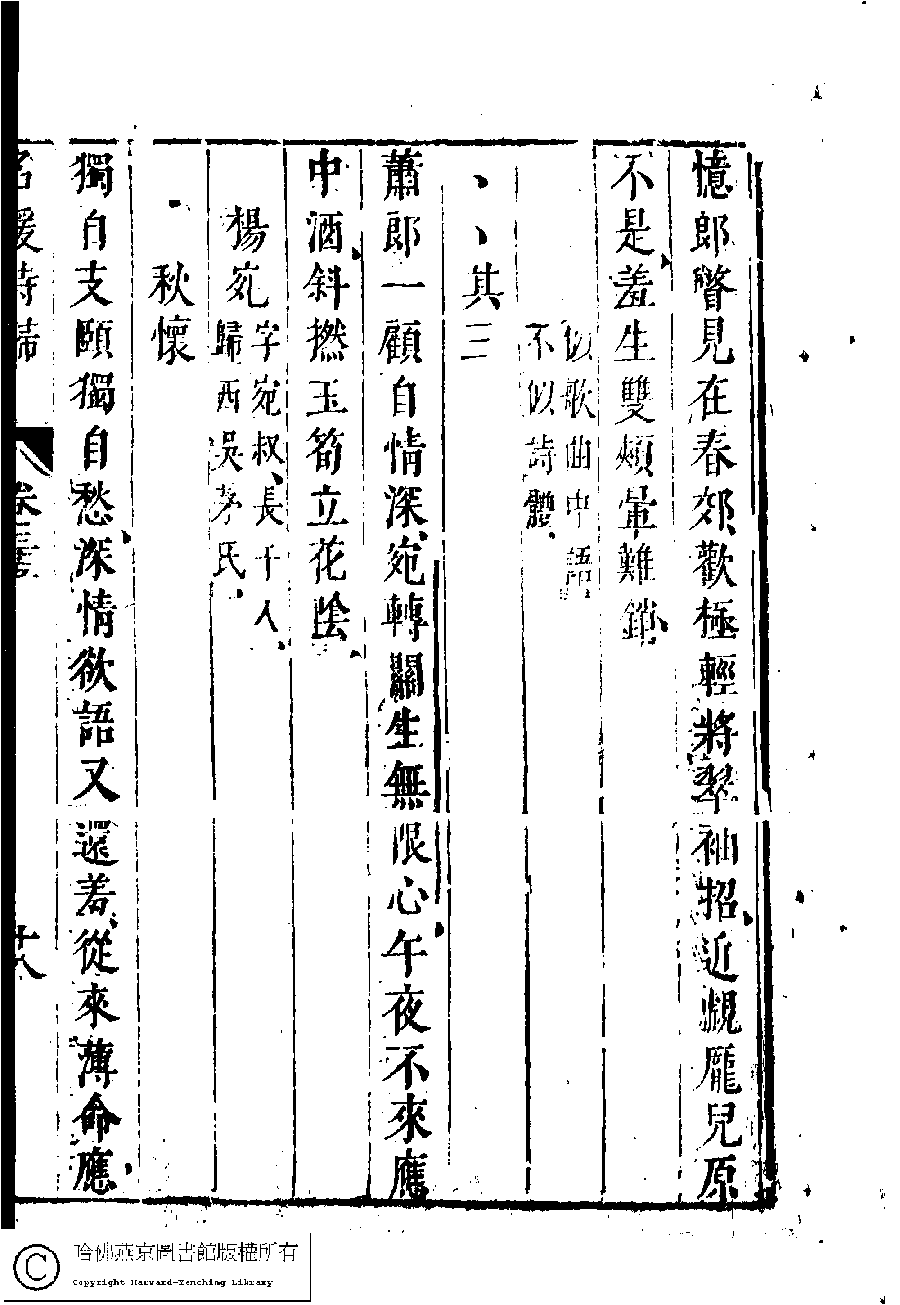 憶郎瞥見在春郊歡極輕將翠袖招近覷龐兒原
不是羞生雙頰暈難銷
似歌曲中語
不似詩體
、、其三
蕭郎一顧自情深宛轉關生無限心午夜不來應
中酒斜撚玉筍立花陰
楊宛
字宛叔長干人
歸西吳茅氏
秋懷
獨自支頤獨自愁深情欲語又還羞從來薄命應
名媛詩歸
十八
哈佛燕京圖書館版權所有
Copyright Harvard-Yenching Library